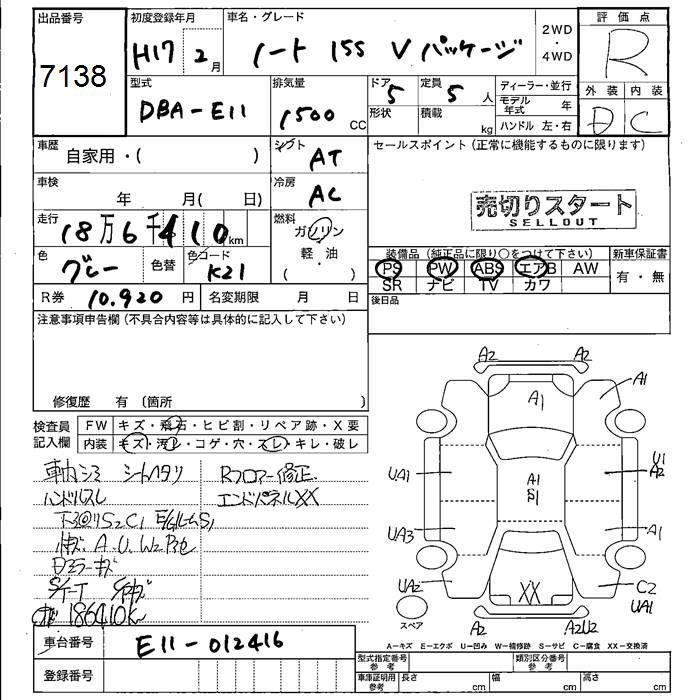 出品番号
7138
初度登録年月
H17 2月
車名・グレード
ノート 15S Vパッケージ
2WD
・
4WD
評価点
R
型式
DBA-E11
排気量
1500 CC
ドア
5
形状
定員
5 人
積載
kg
ディーラー・並行
モデル年式 年
ハンドル 左・右
外装 内装
D C
車歴
自家用・( )
シフト
AT
セールスポイント(正常に機能するものに限ります)
車検
年 月( 日)
冷房
AC
売切りスタート
SELLOUT
走行
18万6千410km
燃料
ガソリン
軽・油
( )
色
グレー
色替
色コード
K21
装備品(純正品に限り○をつけて下さい)
新車保証書
PS PW ABS エアB AW
SR ナビ TV カワ
有・無
R券 10.920 円
名変期限 月 日
後日品
注意事項申告欄(不具合内容等は具体的に記入して下さい)
修復歴 有 〔箇所 〕
検査員
記入欄
FW キズ・飛石・ヒビ割・リペア跡・X要
内装 キズ・汚レ・コゲ・穴・スレ・キレ・破レ
シートヘタリ
Rフロアー修正
ハンドルスレ
エンドパネルXX
186410K
A2 A2
A1 A1
UA1
A1
S1
U1
A2
UA3
A1
UA2
XX
C2
UA1
スペア
A2 A2U2
A-キズ E-エクボ U-凹み W-補修跡 S-サビ C-腐食 XX-交換済
車台番号
E11-012416
登録番号
型式指定番号
参考
類別区分番号
参考
車庫証明用
参考
長さ cm
幅 cm
高さ cm